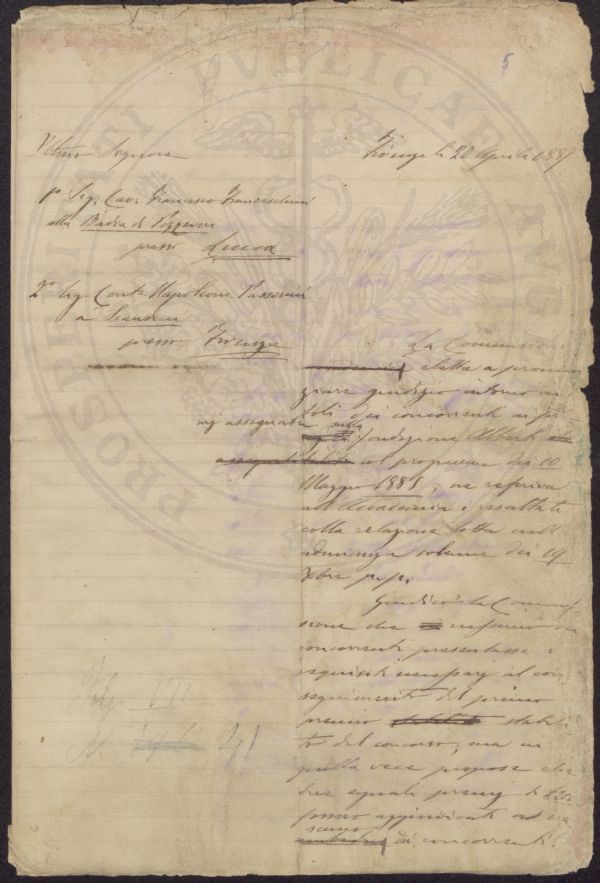 5
Firenze li 20 Aprile 1889
Signore
1º Sig. Cav. Francesco Franceschini
alla Badia di Pozzeveri
presso Lucca
2º Sig. Conte Napoleone Passerini
a Scandicci
presso Firenze
La Commissione
eletta a pronun
ziare giudizio intorno ai
toli dei concorrenti ai
assegnati sulla
fondazione Alberti
col programma dei 10
Maggio 1885, ne referiva
all'Accademia i resultati
colla relazione letta nell'
adunanza solenne dei 19
Xbre p.p.
Giudicò la Commis
sione che nessuno dei
concorrenti presentasse i
requisiti necessarj al con
seguimento del primo
premio stabili
to dal concorso, ma in
quella vece propose che
due eguali premj di
fossero aggiudicati ad
scuno dei concorrenti
VII
PROSPERITATI PUBLICAE AUGENDAE